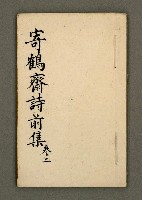 寄鶴齋詩前集 卷二